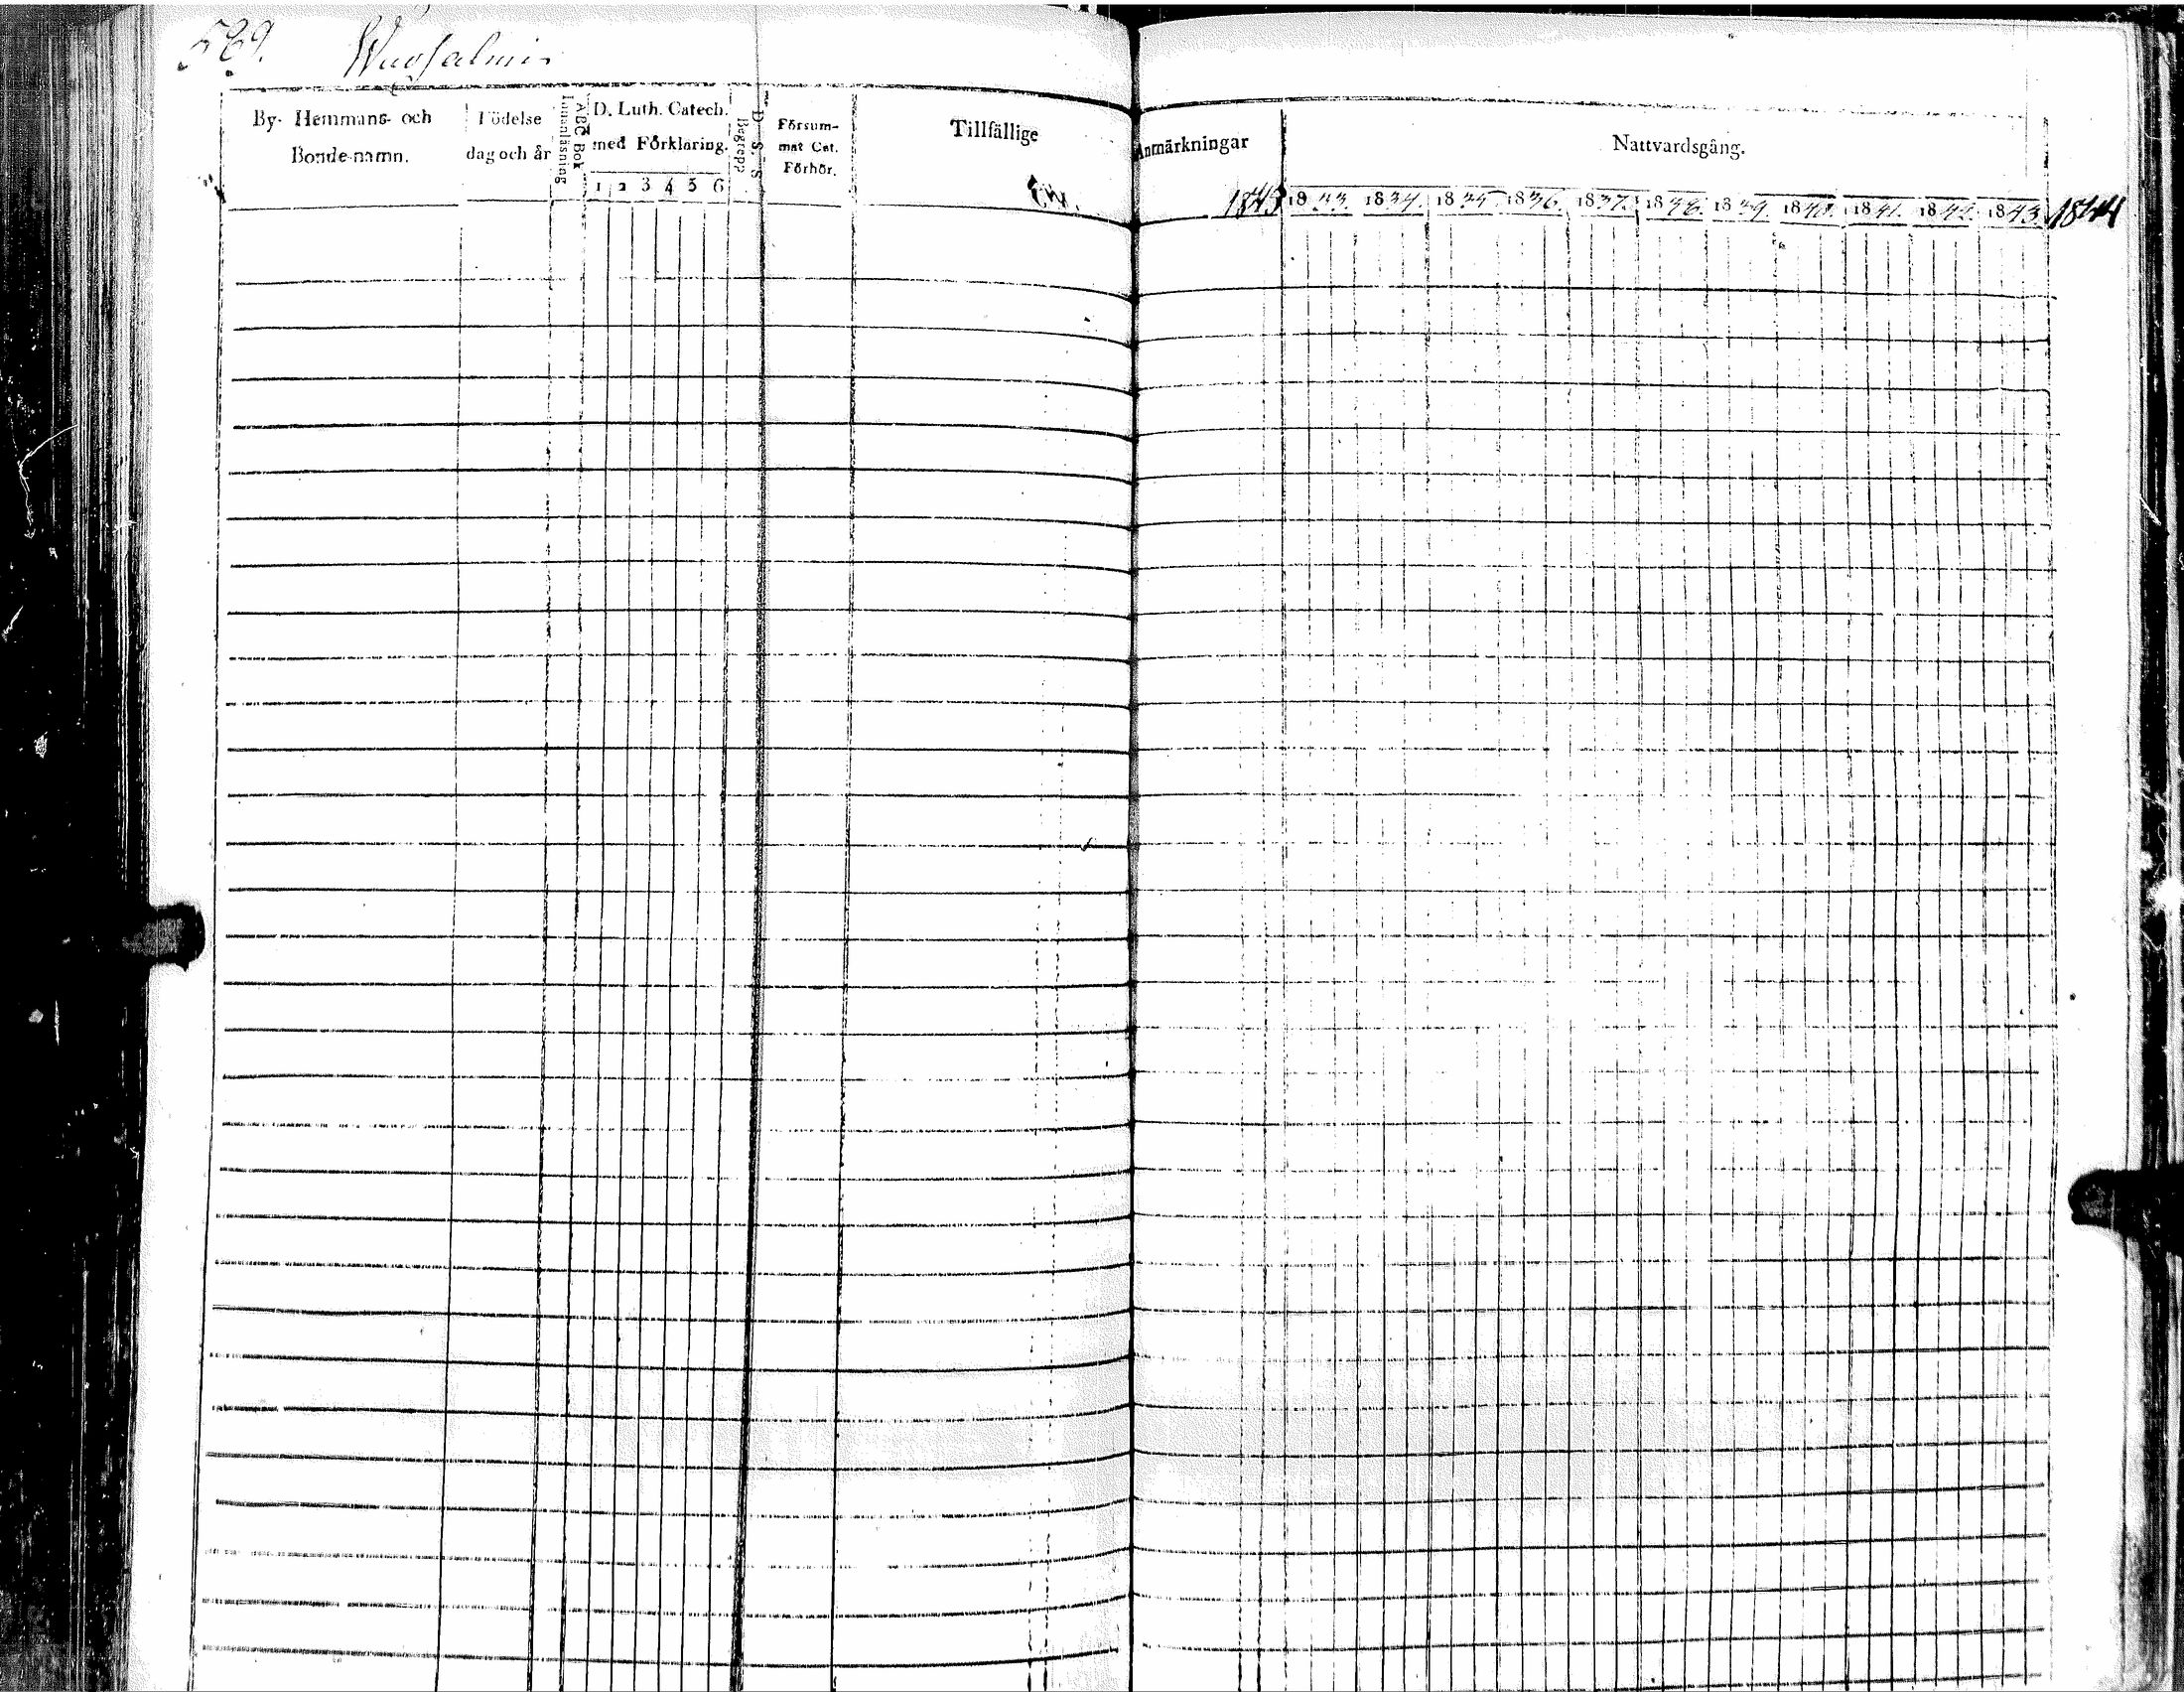 529. Wuosalmi
By- Hemmans- och
Bonde-namn.
Födelse
dag och år
Innanläsning
ABC Bok
D. Luth. Catech.
med Förklaring.
1 2 3 4 5 6
Begrepp
D. S. S
Försum-
mat Cat.
Förhör.
Tillfällige Anmärkningar
1843
Nattvardsgång.
1833. 1834. 1835. 1836. 1837. 1838. 1839. 1840. 1841. 1842. 1843. 1844